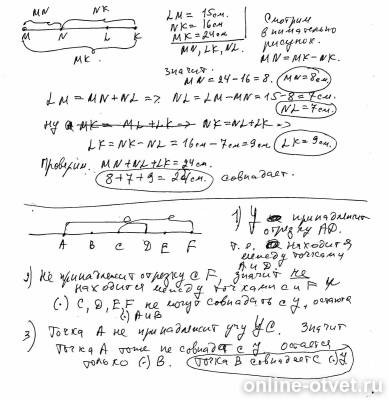 MN NK
M N L K
MK
LM = 15см.
NK = 16см
MK = 24см
MN, LK, NL.
Смотрим
внимательно
рисунок.
MN = MK - NK.
значит
MN = 24 - 16 = 8. MN = 8см
LM = MN + NL => NL = LM - MN = 15 - 8 = 7см.
NL = 7см.
ну NK = NL + LK =>
LK = NK - NL = 16см - 7см = 9см LK = 9см.
Проверим. MN + NL + LK = 24см.
8 + 7 + 9 = 24см. совпадает.
A B C D E F
1) У принадлежит
отрезку AD.
т.е. находится
между точками
A и D.
2) Не принадлежит отрезку CF, значит не
находится между точками C и F
(·) C, D, E, F не могут совпадать с У, остаются
(·) A и B
3) Точка A не принадлежит лучу УС. Значит
точка A тоже не совпадает с У, остается
только (·) B. Точка B совпадает с (·) У
online-otvet.ru